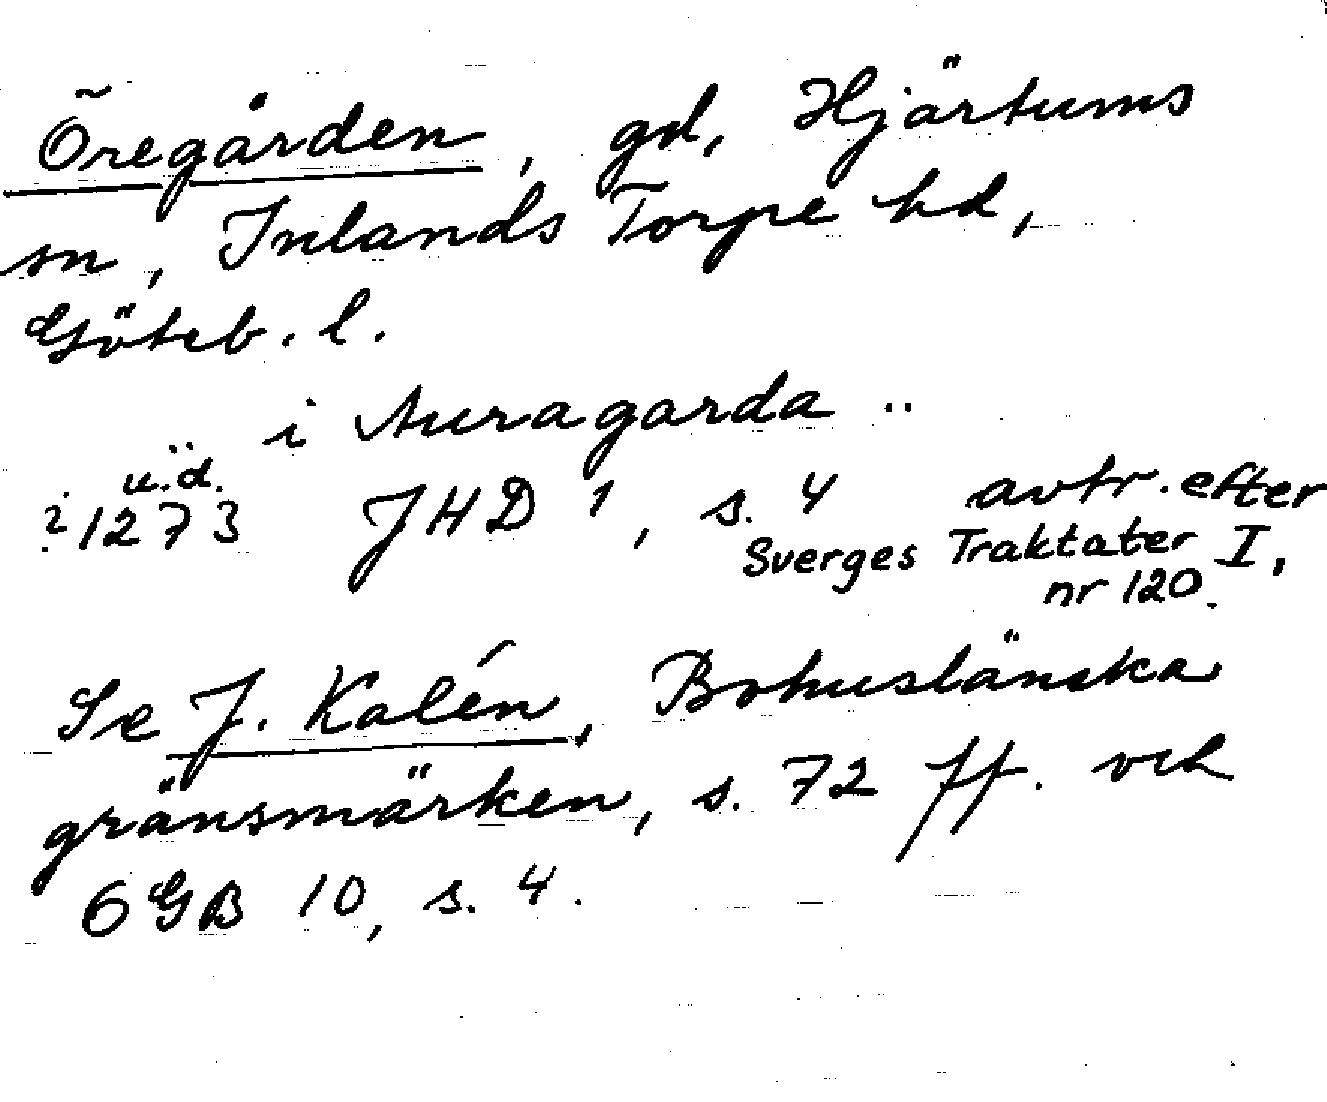 Öregården, gd, Hjärtums
sn, Inlands Torpe hd,
Göteb. l.
i Auragarda ..
u.d.
? 1273 JHD 1, s. 4 avtr. efter
Sverges Traktater I,
nr 120.
Se J. Kalén, Bohuslänska
gränsmärken, s. 72 ff. och
OGB 10, s. 4.